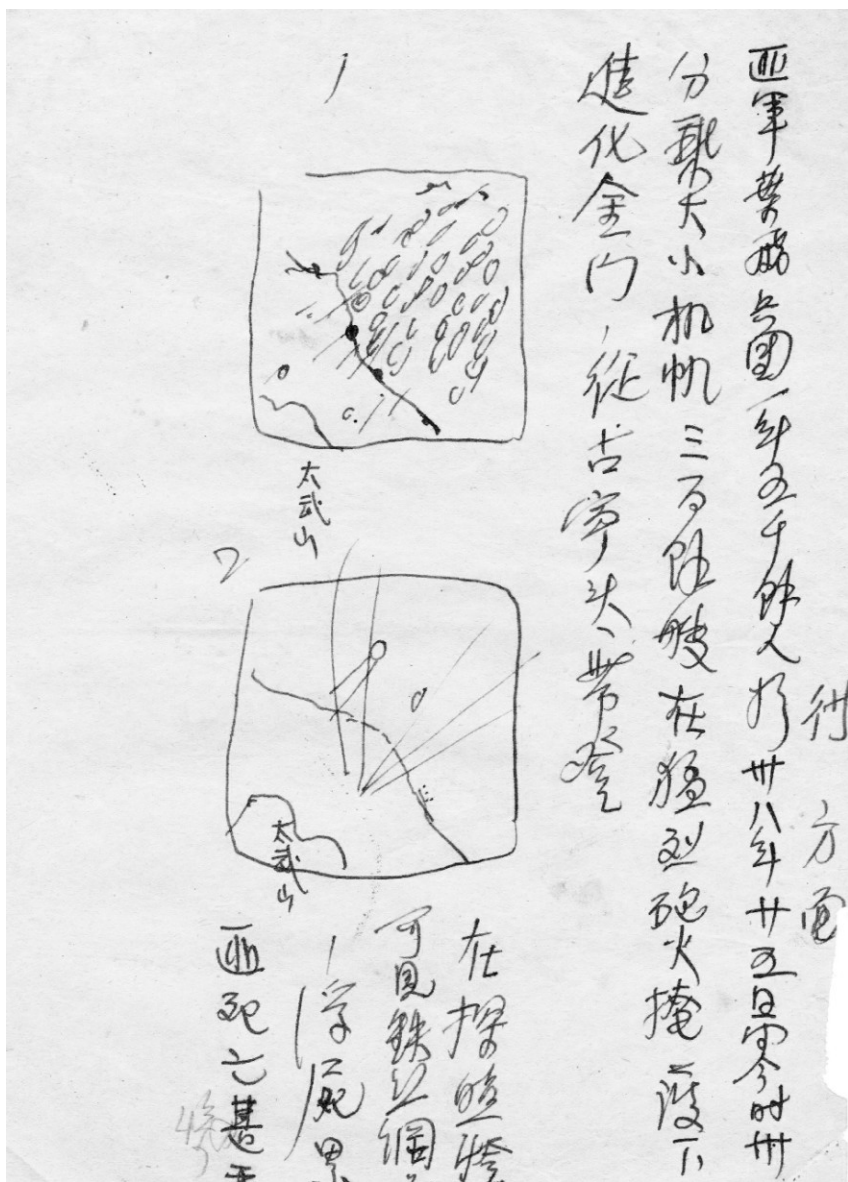 方面
匪軍葉飛兵團一萬五千餘人於卅八年廿五日零時卅
分乘大小机帆三百餘艘在猛烈砲火掩護下
進化金门，從古寧头一帶登
1
太武山
2
太武山
在探照燈
可見鉄絲網
浮屍累
匪死亡甚